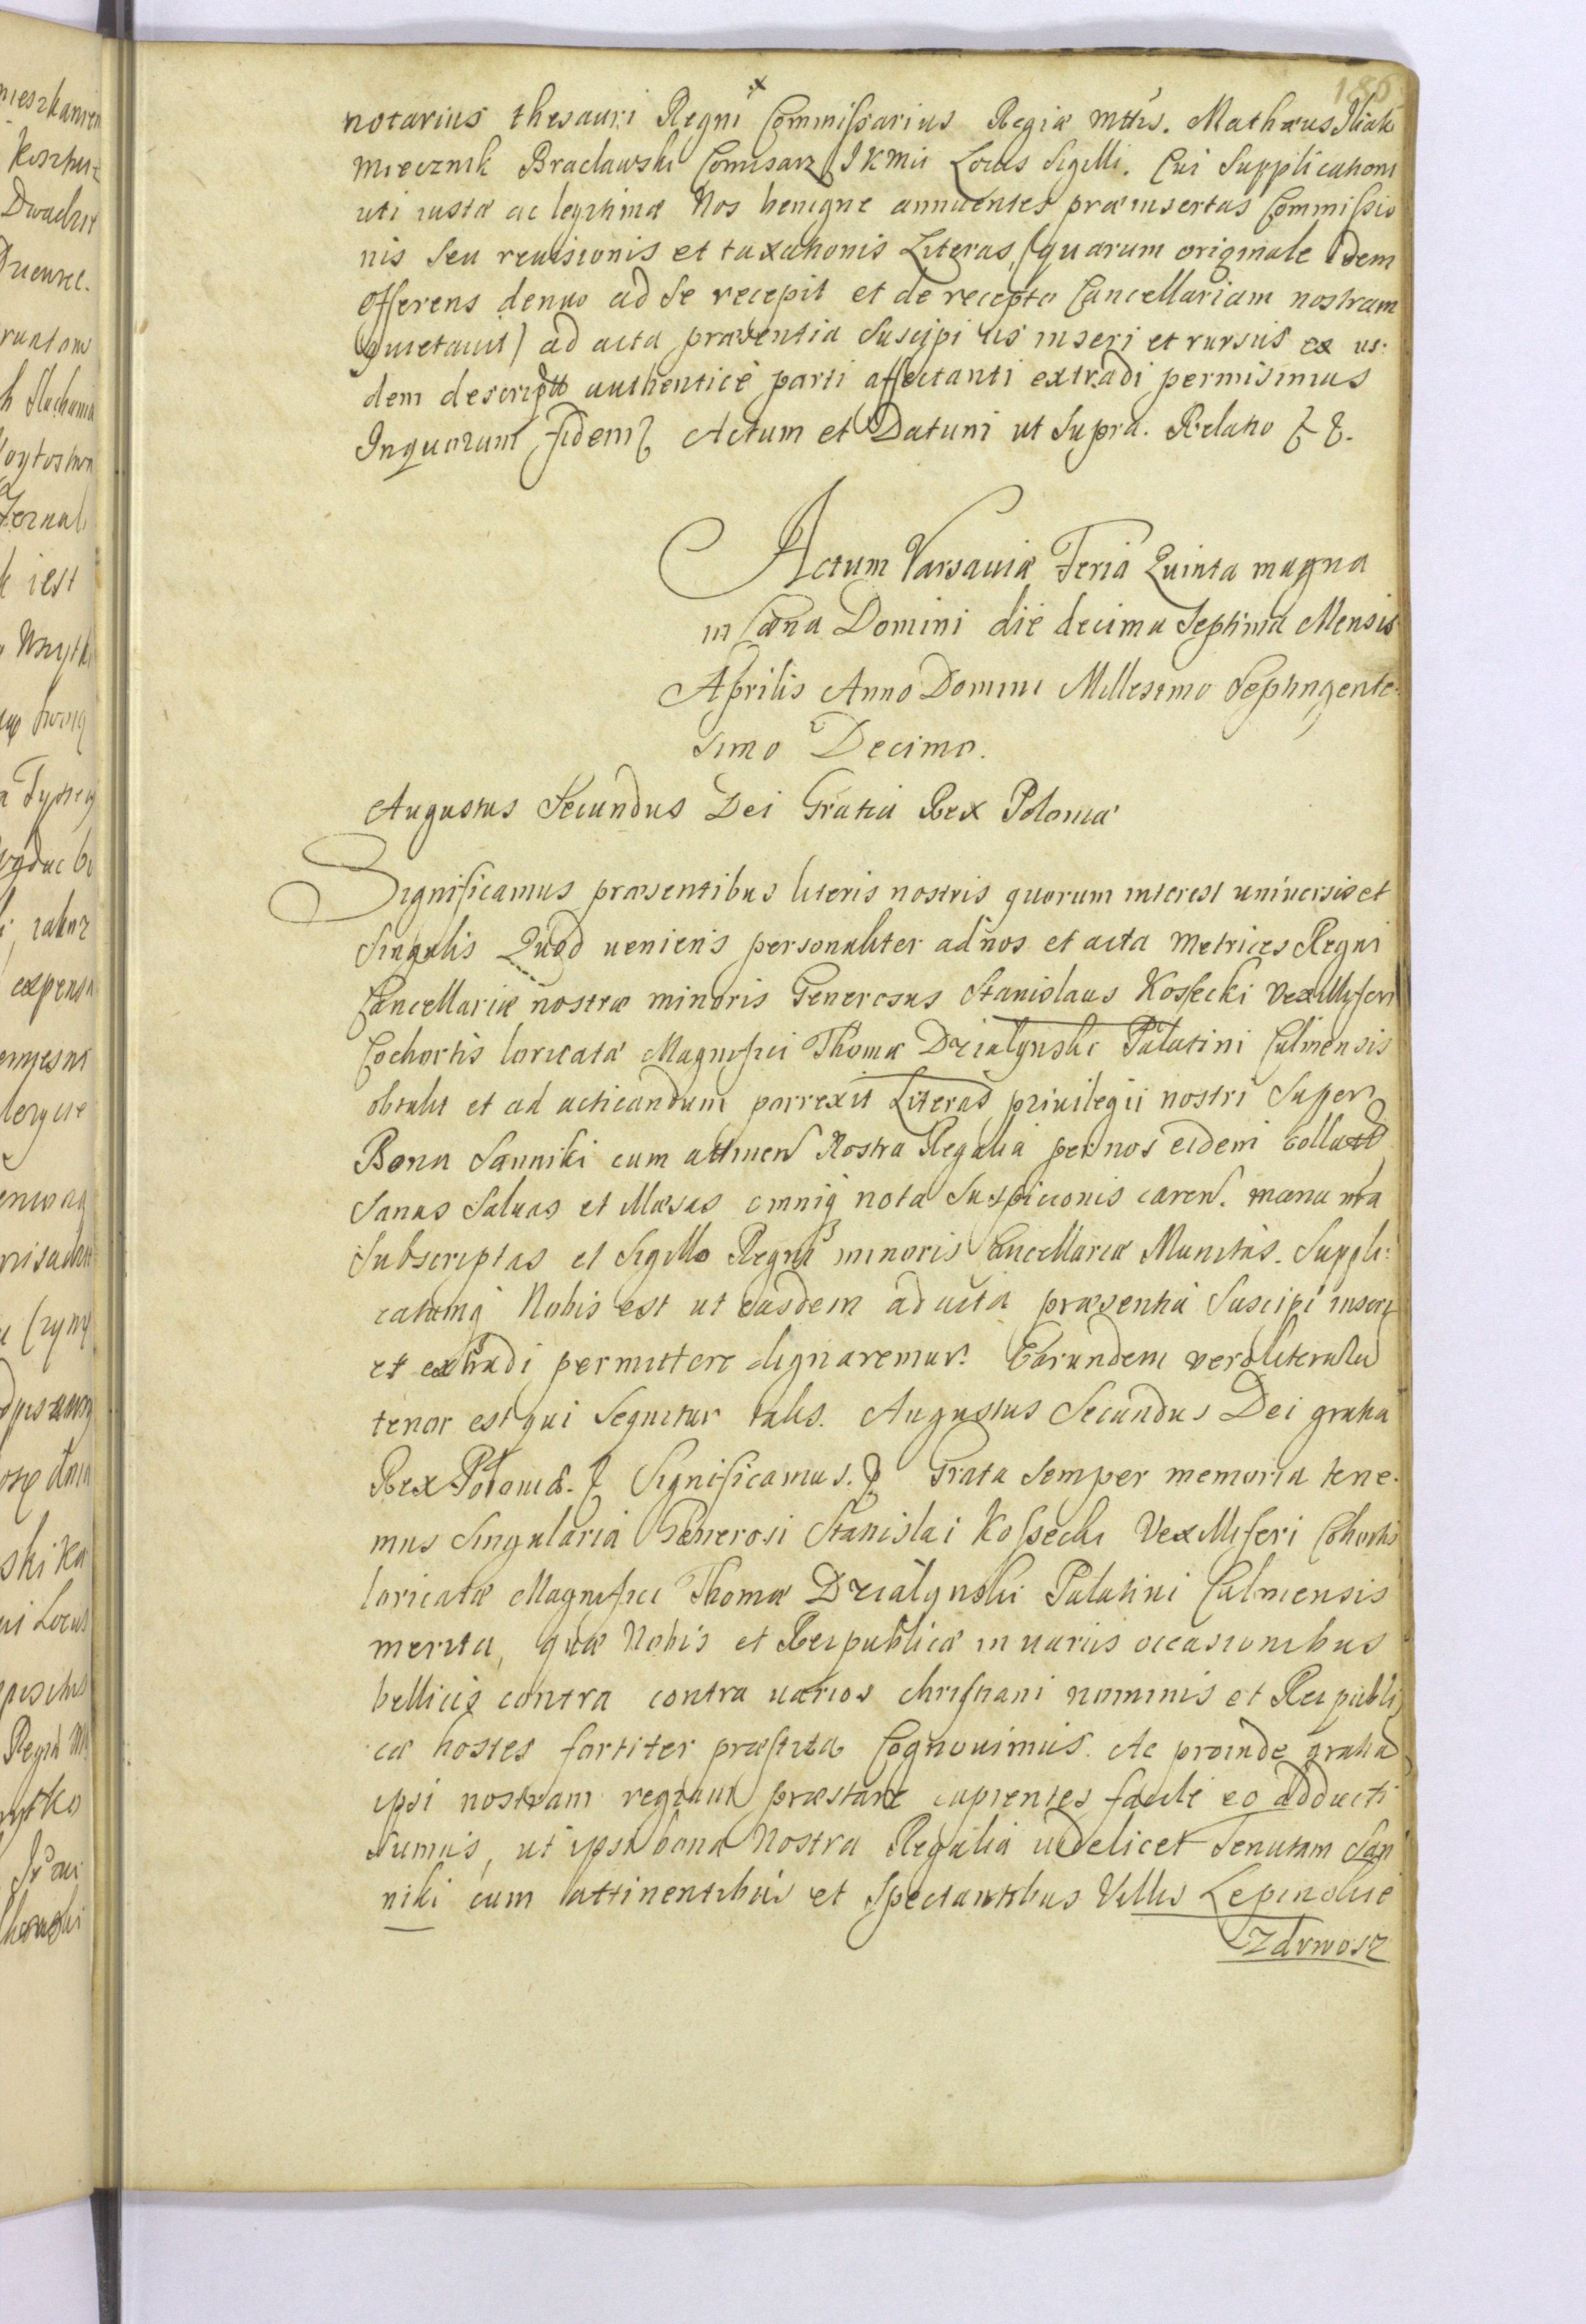 186
notarius thesauri Regni Commissarius Regiæ mttis. Mathæus
Miecznik Braclawski Comisarz J K Mci Locus Sigilli. Cui Supplicationi
uti iustæ ac legitimæ Nos benigne annuentes præinsertas Commissio
nis seu reuisionis et taxationis Literas, (quarum originale idem
offerens denuo ad se recepit et de recepto Cancellariam nostram
quietauit) ad acta præsentia Suscipi iis inseri et rursus ex iis:
dem descriptt authenticè parti affectanti extradi permisimus
Inquorum fidem Actum et Datum ut Supra. Relatio
Actum Varsauiæ Feria Quinta magna
in Cæna Domini die decima Septima Mensis
Aprilis Anno Domini Millesimo Septingente:
simo Decimo.
Augustus Secundus Dei Gratia Rex Poloniæ
Significamus præsentibus literis nostris quorum interest uniuersis et
Singulis Quod ueniens personaliter ad nos et acta Metrices Regni
Cancellariæ nostræ minoris Generosus Stanislaus Kossecki Vexilliferi
Cochortis loricatæ Magnifici Thomæ Dzialynski Palatini Culmensis
obtulit et ad acticandum porrexit Literas priuilegii nostri Super
Bona Sanniki cum attinen Nostra Regalia per nos eidem collatt
Sanas Saluas et illæsas omniq nota Suspicionis caren. manu nra
Subscriptas et Sigillo Regni minoris Cancellariæ Munitas. Suppli:
catumq Nobis est ut easdem ad acta præsentia Suscipi inseri
et extradi permittere dignaremur. Earundem vero literaru
tenor est qui Sequitur talis. Augustus Secundus Dei gratia
Rex Poloniæ. Significamus. Grata semper memoria tene:
mus Singularia Generosi Stanislai Kossecki Vexilliferi Cohortis
loricatæ Magnifici Thomæ Dzialynski Palatini Culmensis
merita, quæ Nobis et Reipublicæ in uariis occasionibus
bellicis contra contra uarios christiani nominis et Reipubli
cæ hostes fortiter præstita Cognouimus. Ac proinde gratia
ipsi nostram regiam præstare cupientes facile eo adducti
sumus, ut ipsi bona Nostra Regalia uidelicet Tenutam San
niki cum attinentibus et Spectantibus Villis Lepinolie
Zdrwosz